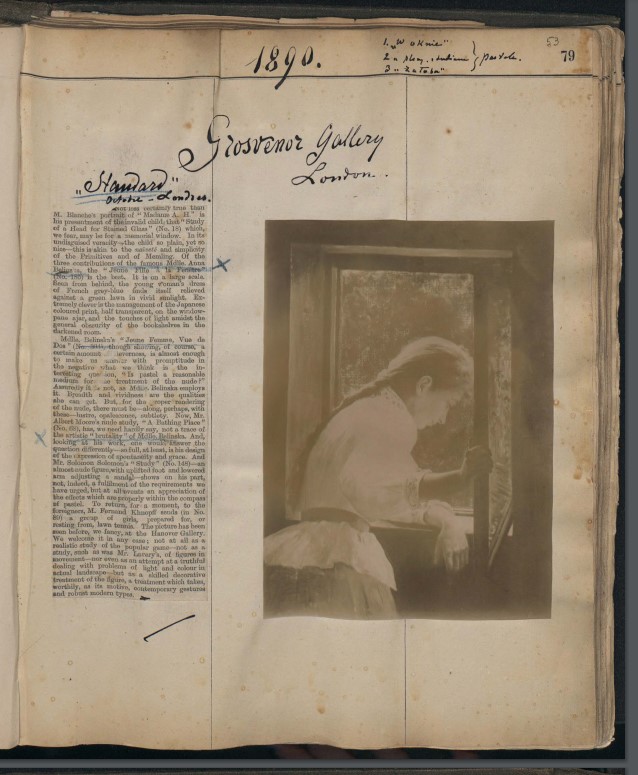 53
79
1890.
1. „W oknie"
2 „ plecy, studium
3 „ Zatoka"
} pastele.
Grosvenor Gallery
London.
„Standard"
Octobre - Londres.
not less certainly true than
M. Blanche's portrait of "Madame A. H" is
his presentment of the invalid child; that "Study
of a Head for Stained Glass" (No. 18) which,
we fear, may be for a memorial window. In its
undisguised veracity—the child so plain, yet so
nice—this is akin to the naïveté and simplicity
of the Primitives and of Memling. Of the
three contributions of the famous Mdlle. Anna
Belinska, the "Jeune Fille à la Fenêtre"
(No. 155) is the best. It is on a large scale.
Seen from behind, the young woman's dress
of French gray-blue finds itself relieved
against a green lawn in vivid sunlight. Ex-
tremely clever is the management of the Japanese
coloured print, half transparent, on the window-
pane ajar, and the touches of light amidst the
general obscurity of the bookshelves in the
darkened room.
Mdlle. Belinska's "Jeune Femme, Vue de
Dos" (No. though showing, of course, a
certain amount cleverness, is almost enough
to make us answer with promptitude in
the negative what we think is the in-
teresting question, "Is pastel a reasonable
medium for the treatment of the nude?"
Assuredly it is not, as Mdlle. Belinska employs
it. Breadth and vividness are the qualities
she can get. But, for the proper rendering
of the nude, there must be—along, perhaps, with
these—lustre, opalescence, subtlety. Now, Mr.
Albert Moore's nude study, "A Bathing Place"
(No. has, we need hardly say, not a trace of
the artistic "brutality" of Mdlle. Belinska. And,
looking at his work, one would answer the
question differently—so full, at least, is his design
of the expression of spontaneity and grace. And
Mr. Solomon Solomon's "Study" (No. 148)—an
almost nude figure, with uplifted foot and lowered
arm adjusting a sandal—shows on his part,
not, indeed, a fulfilment of the requirements we
have urged, but at all events an appreciation of
the effects which are properly within the compass
of pastel. To return, for a moment, to the
foreigners, M. Fernand Khnopff sends (in No.
89) a group of girls, prepared for, or
resting from, lawn tennis. The picture has been
seen before, we fancy, at the Hanover Gallery.
We welcome it in any case; not at all as a
realistic study of the popular game—not as a
study, such as was Mr. Lavery's, of figures in
movement—nor even as an attempt at a truthful
dealing with problems of light and colour in
actual landscape—but as a skilled decorative
treatment of the figure, a treatment which takes,
worthily, as its motive, contemporary gestures
and robust modern types.